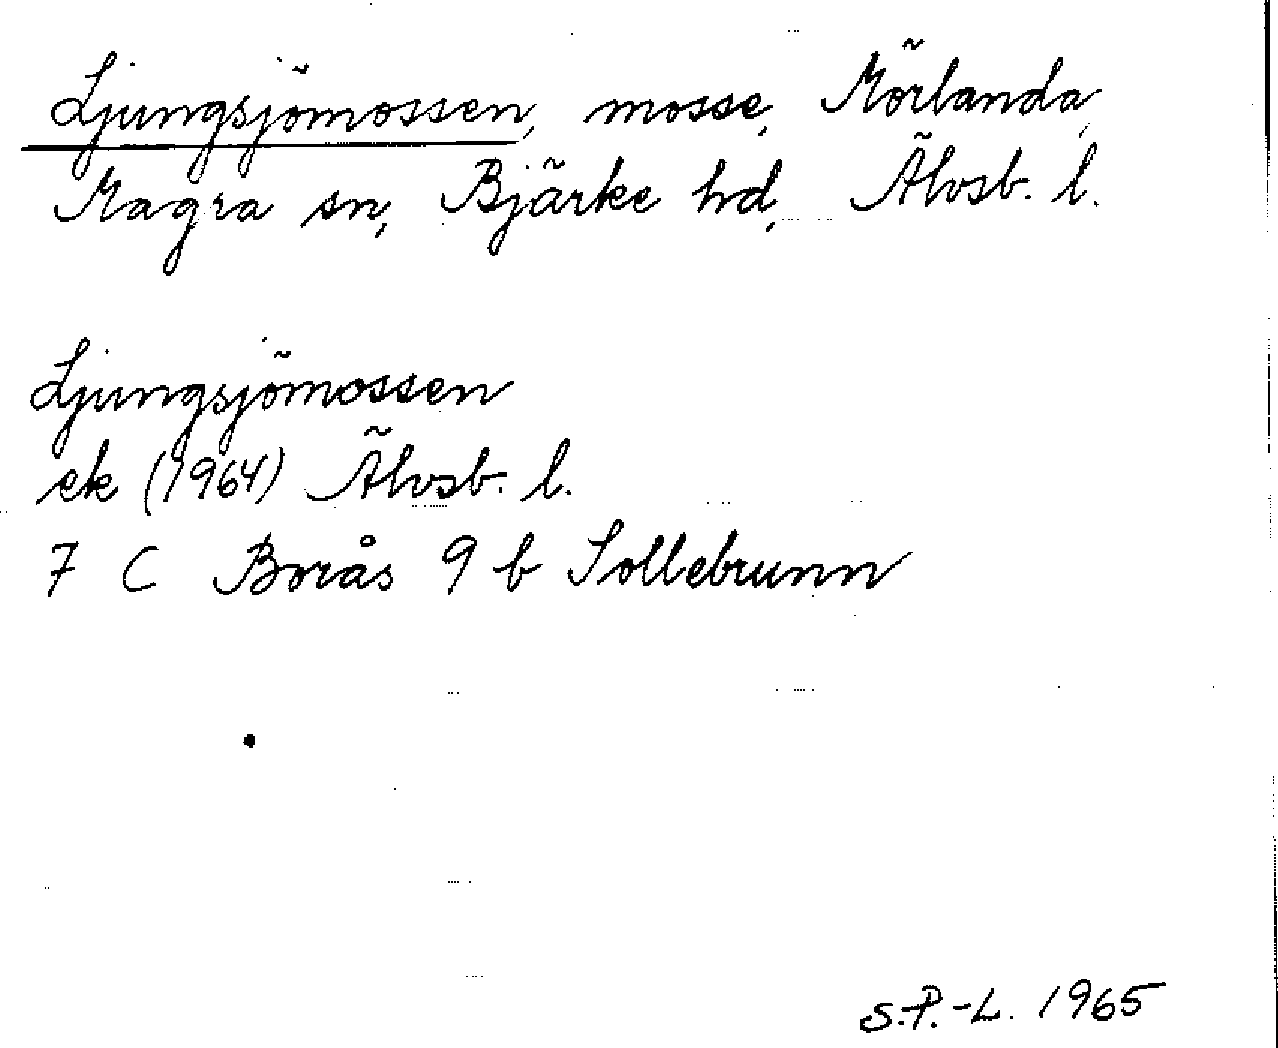 Ljungsjömossen, mosse, Mörlanda,
Magra sn, Bjärke hd, Älvsb. l.
Ljungsjömossen
ek (1964) Älvsb. l.
7 C Borås 9 b Sollebrunn
S.P.-L. 1965